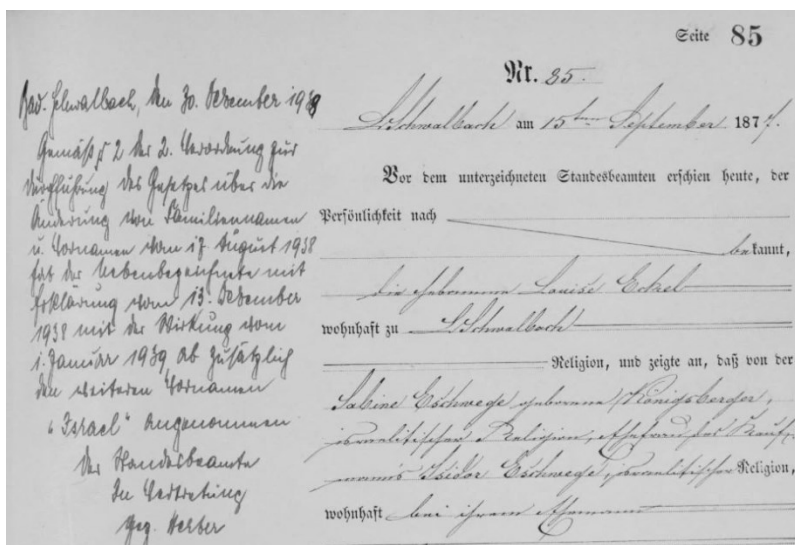 Seite 85
Nr. 85.
L. Schwalbach am 15ten September 1877.
Vor dem unterzeichneten Standesbeamten erschien heute, der
Persönlichkeit nach
bekannt,
die Hebamme Louise Eckel
wohnhaft zu L. Schwalbach
Religion, und zeigte an, daß von der
Sabine Eschwege geborene Königsberger,
israelitischer Religion, Ehefrau des Kauf-
manns Isidor Eschwege, israelitischer Religion,
wohnhaft bei ihrem Ehemann
Bad. Schwalbach, den 30. Dezember 1938
Gemäß § 2 der 2. Verordnung zur
Durchführung des Gesetzes über die
Änderung von Familiennamen
u. Vornamen vom 17 August 1938
hat der Nebenbezeichnete mit
Erklärung vom 13. Dezember
1938 mit der Wirkung vom
1. Januar 1939 ab zusätzlich
den weiteren Vornamen
"Israel" angenommen
Der Standesbeamte
In Vertretung
gez. Herber